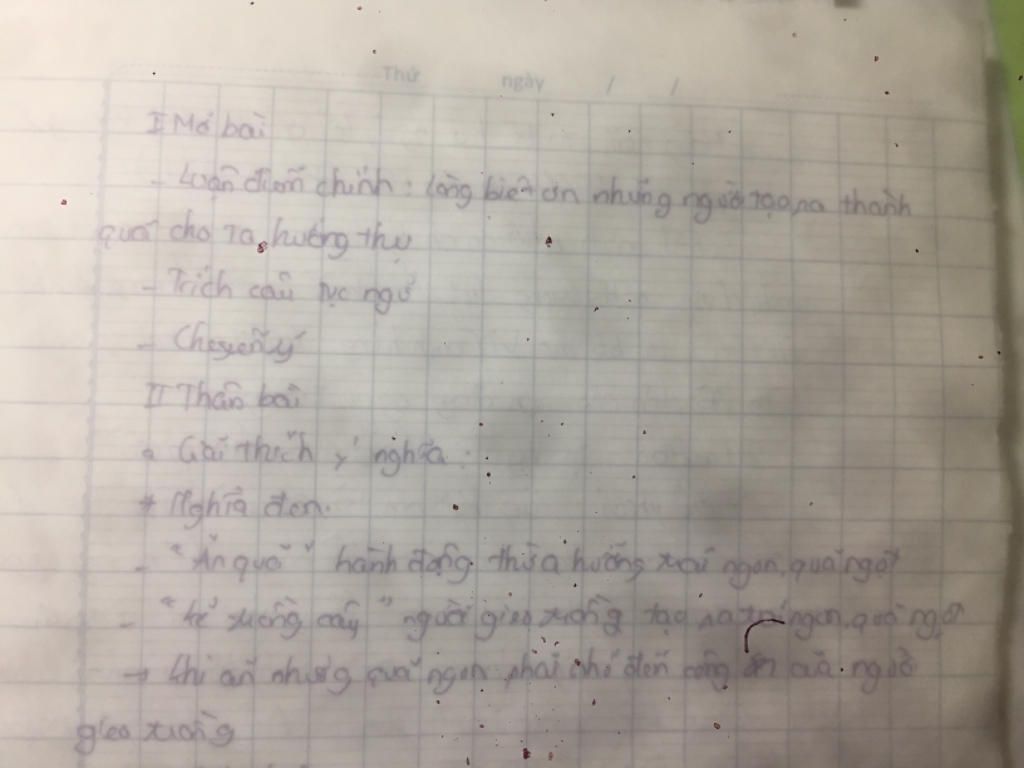 Thứ ngày / /
I Mở bài
- Luận điểm chính : lòng biết ơn những người tạo ra thành
quả cho ta hưởng thụ
- Trích câu tục ngữ
- Chuyển ý
II Thân bài
a Giải thích ý nghĩa :
* Nghĩa đen.
- "Ăn quả" hành động thừa hưởng trái ngon, quả ngọt
- "kẻ trồng cây" người gieo trồng tạo ra trái ngon, quả ngọt
→ Khi ăn những quả ngon phải nhớ đến công ơn của người
gieo trồng